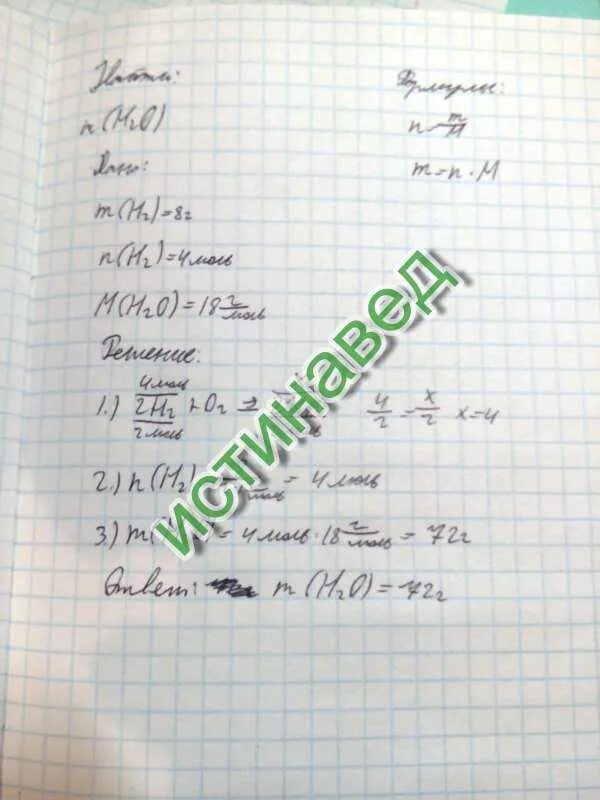 Найти:
n(H₂O)
Дано:
m(H₂)=8г
n(H₂)=4моль
M(H₂O)=18 г/моль
Формулы:
n=m/M
m=n·M
Решение:
4моль
1.) 2H₂+O₂ → 4/2=x/2 x=4
2моль
2.) n(H₂) = 4моль
3.) m( = 4моль·18 г/моль = 72г
Ответ: m(H₂O)=72г
истинавед